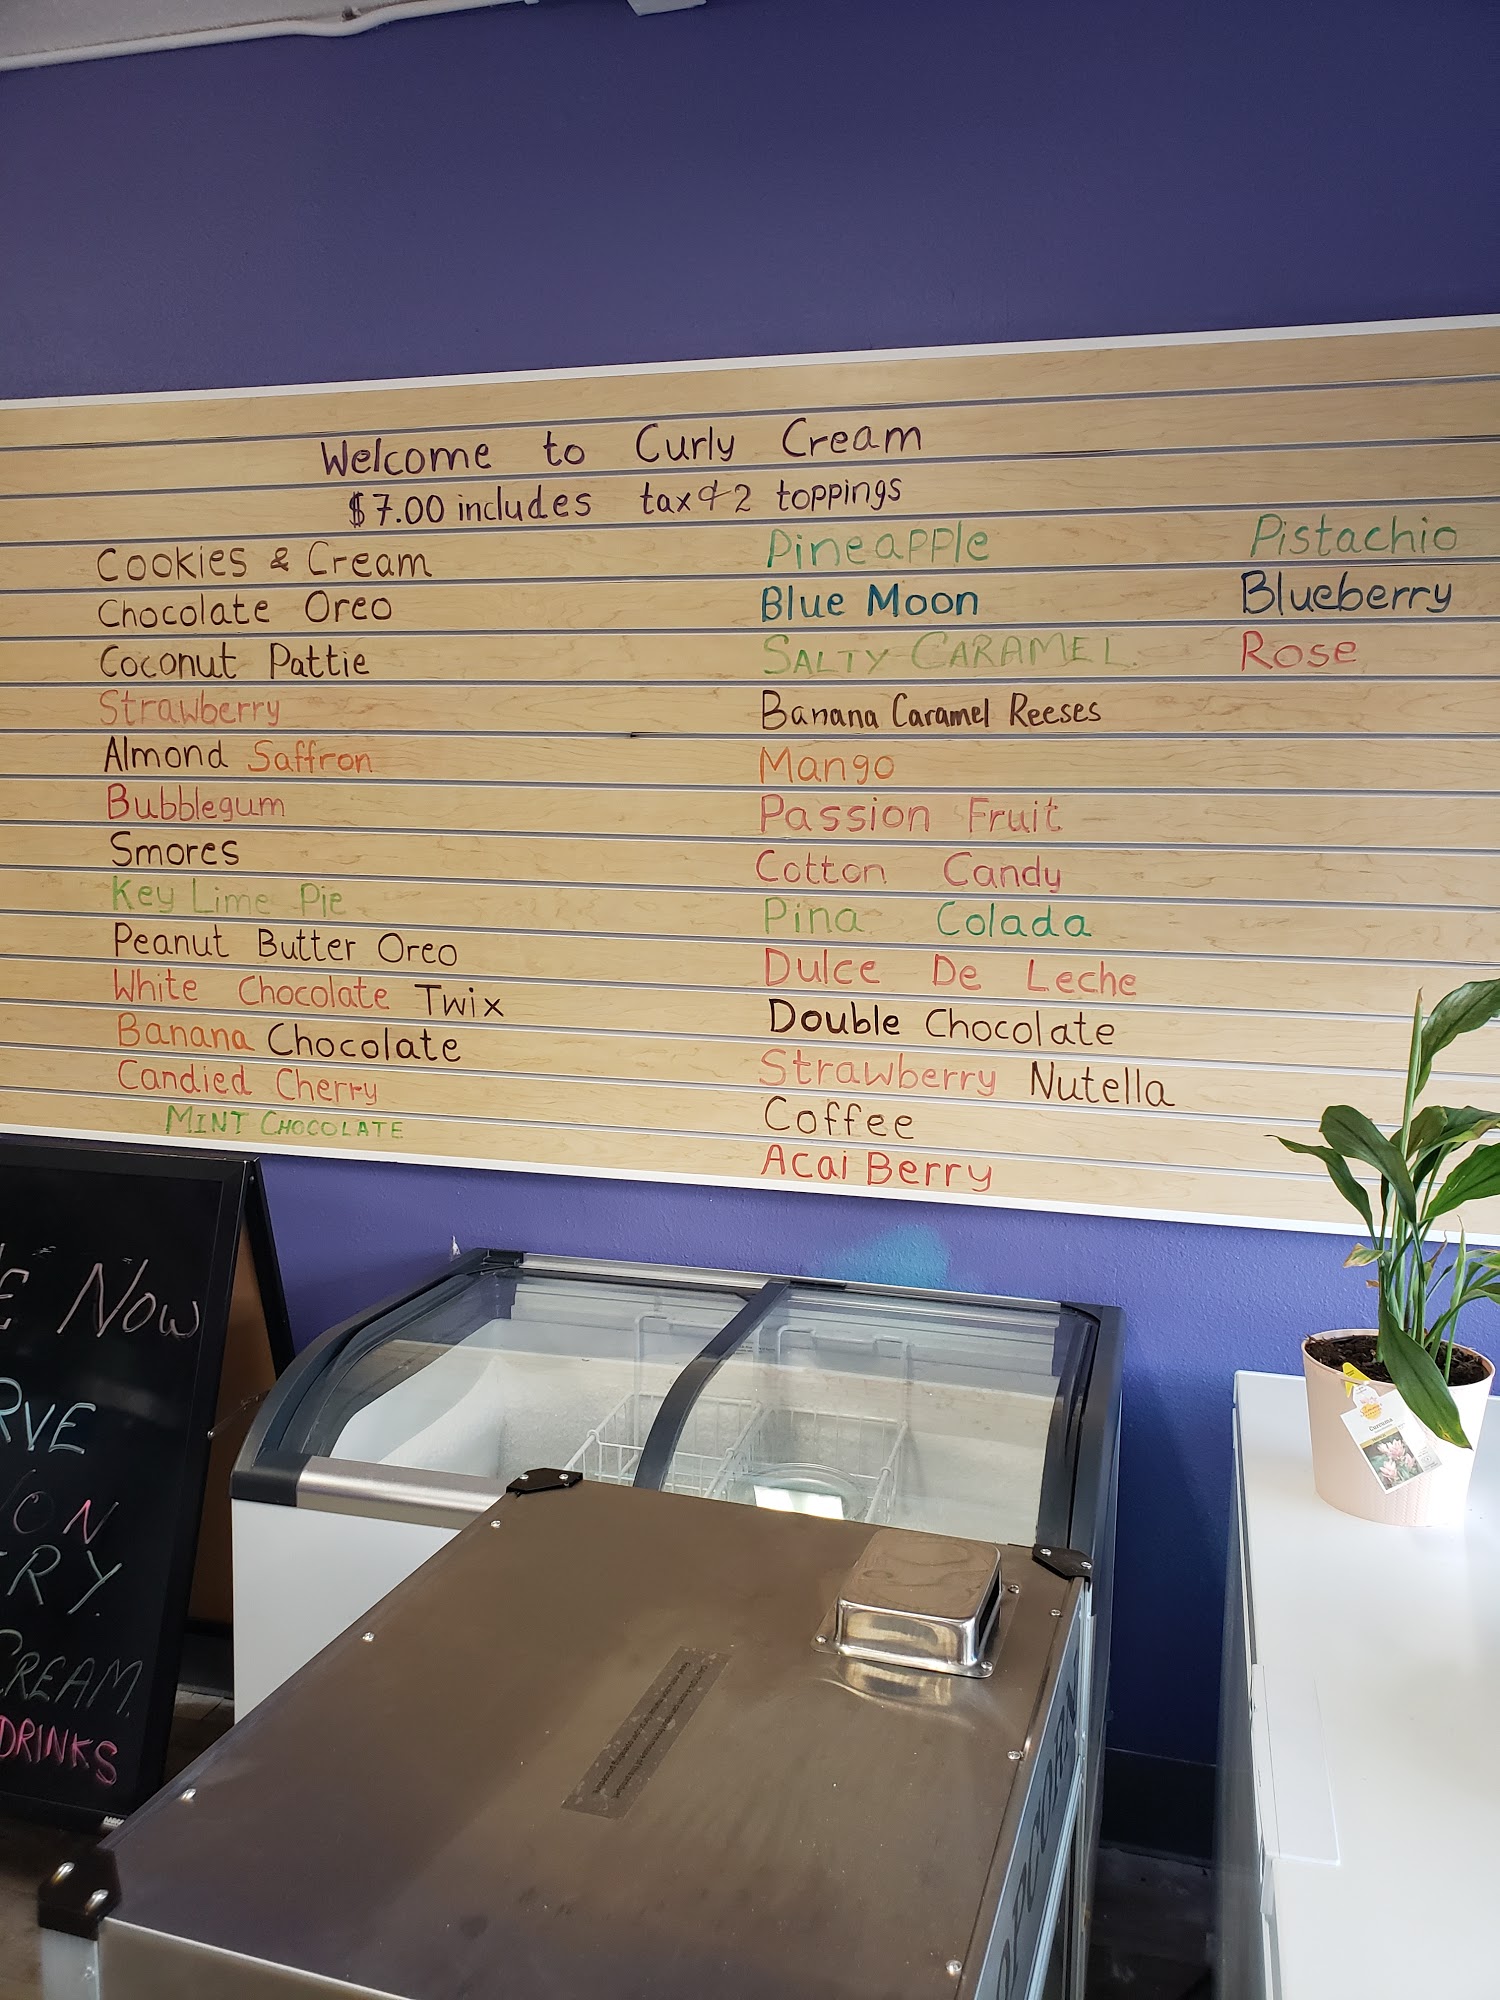 Welcome to Curly Cream
$7.00 includes tax & 2 toppings
Cookies & Cream
Chocolate Oreo
Coconut Pattie
Strawberry
Almond Saffron
Bubblegum
Smores
Key Lime Pie
Peanut Butter Oreo
White Chocolate Twix
Banana Chocolate
Candied Cherry
MINT CHOCOLATE
Pineapple
Blue Moon
SALTY CARAMEL.
Banana Caramel Reeses
Mango
Passion Fruit
Cotton Candy
Pina Colada
Dulce De Leche
Double Chocolate
Strawberry Nutella
Coffee
Acai Berry
Pistachio
Blueberry
Rose
E NOW
RVE
ON
RY.
CREAM.
DRINKS